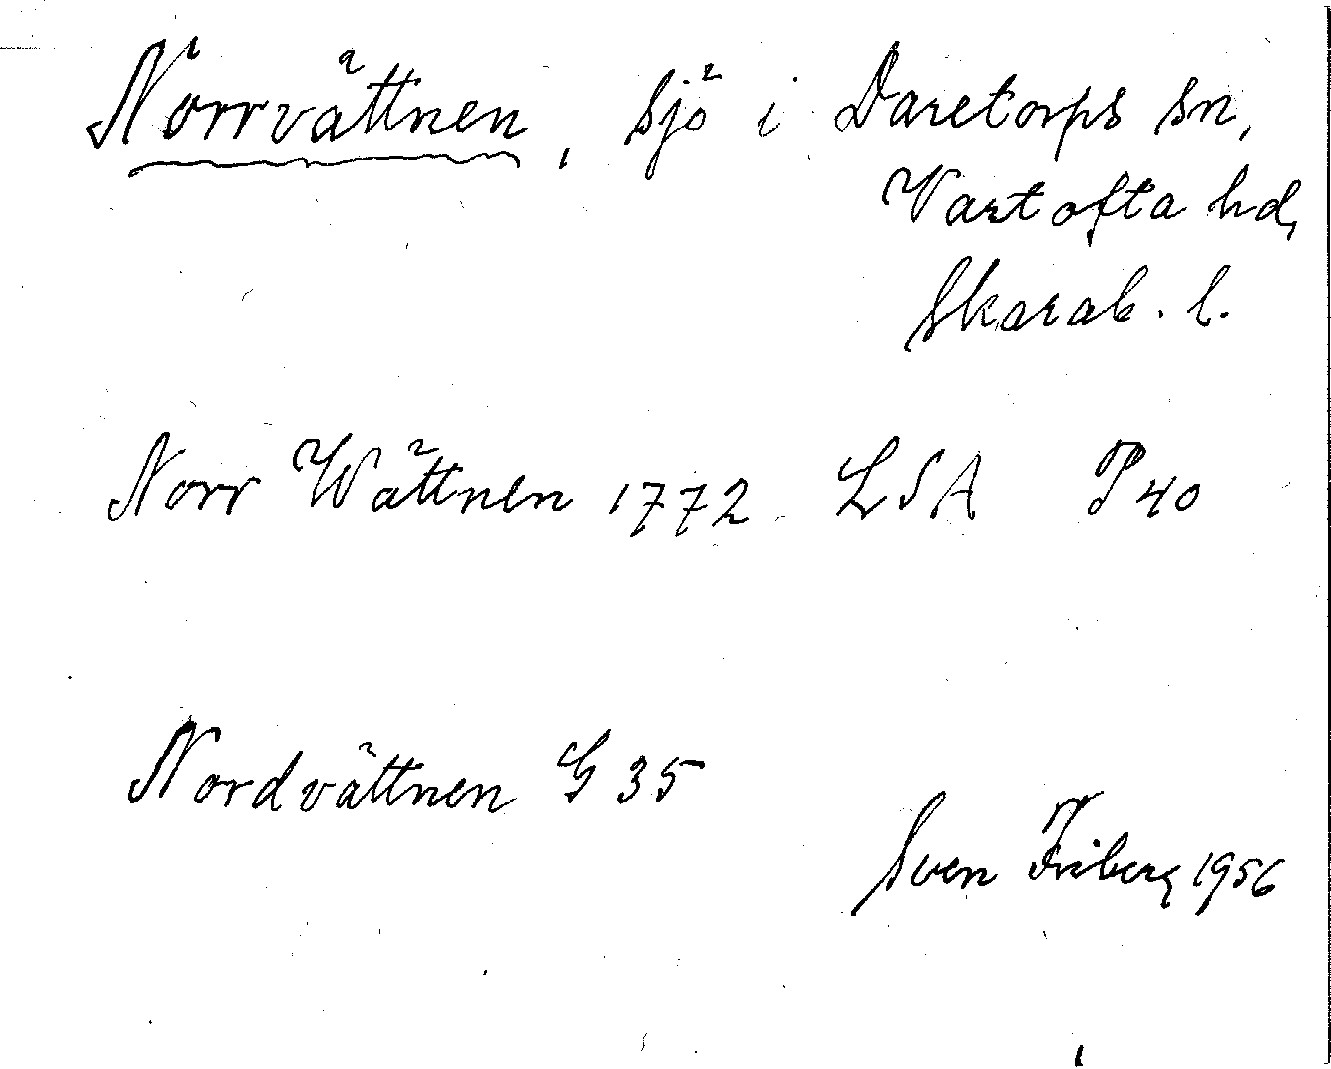 Norrvättnen, sjö i Daretorps sn,
Vartofta hd,
Skarab. l.
Norr Wättnen 1772 LSA P 40
Nordvättnen G 35
Sven Friberg 1956